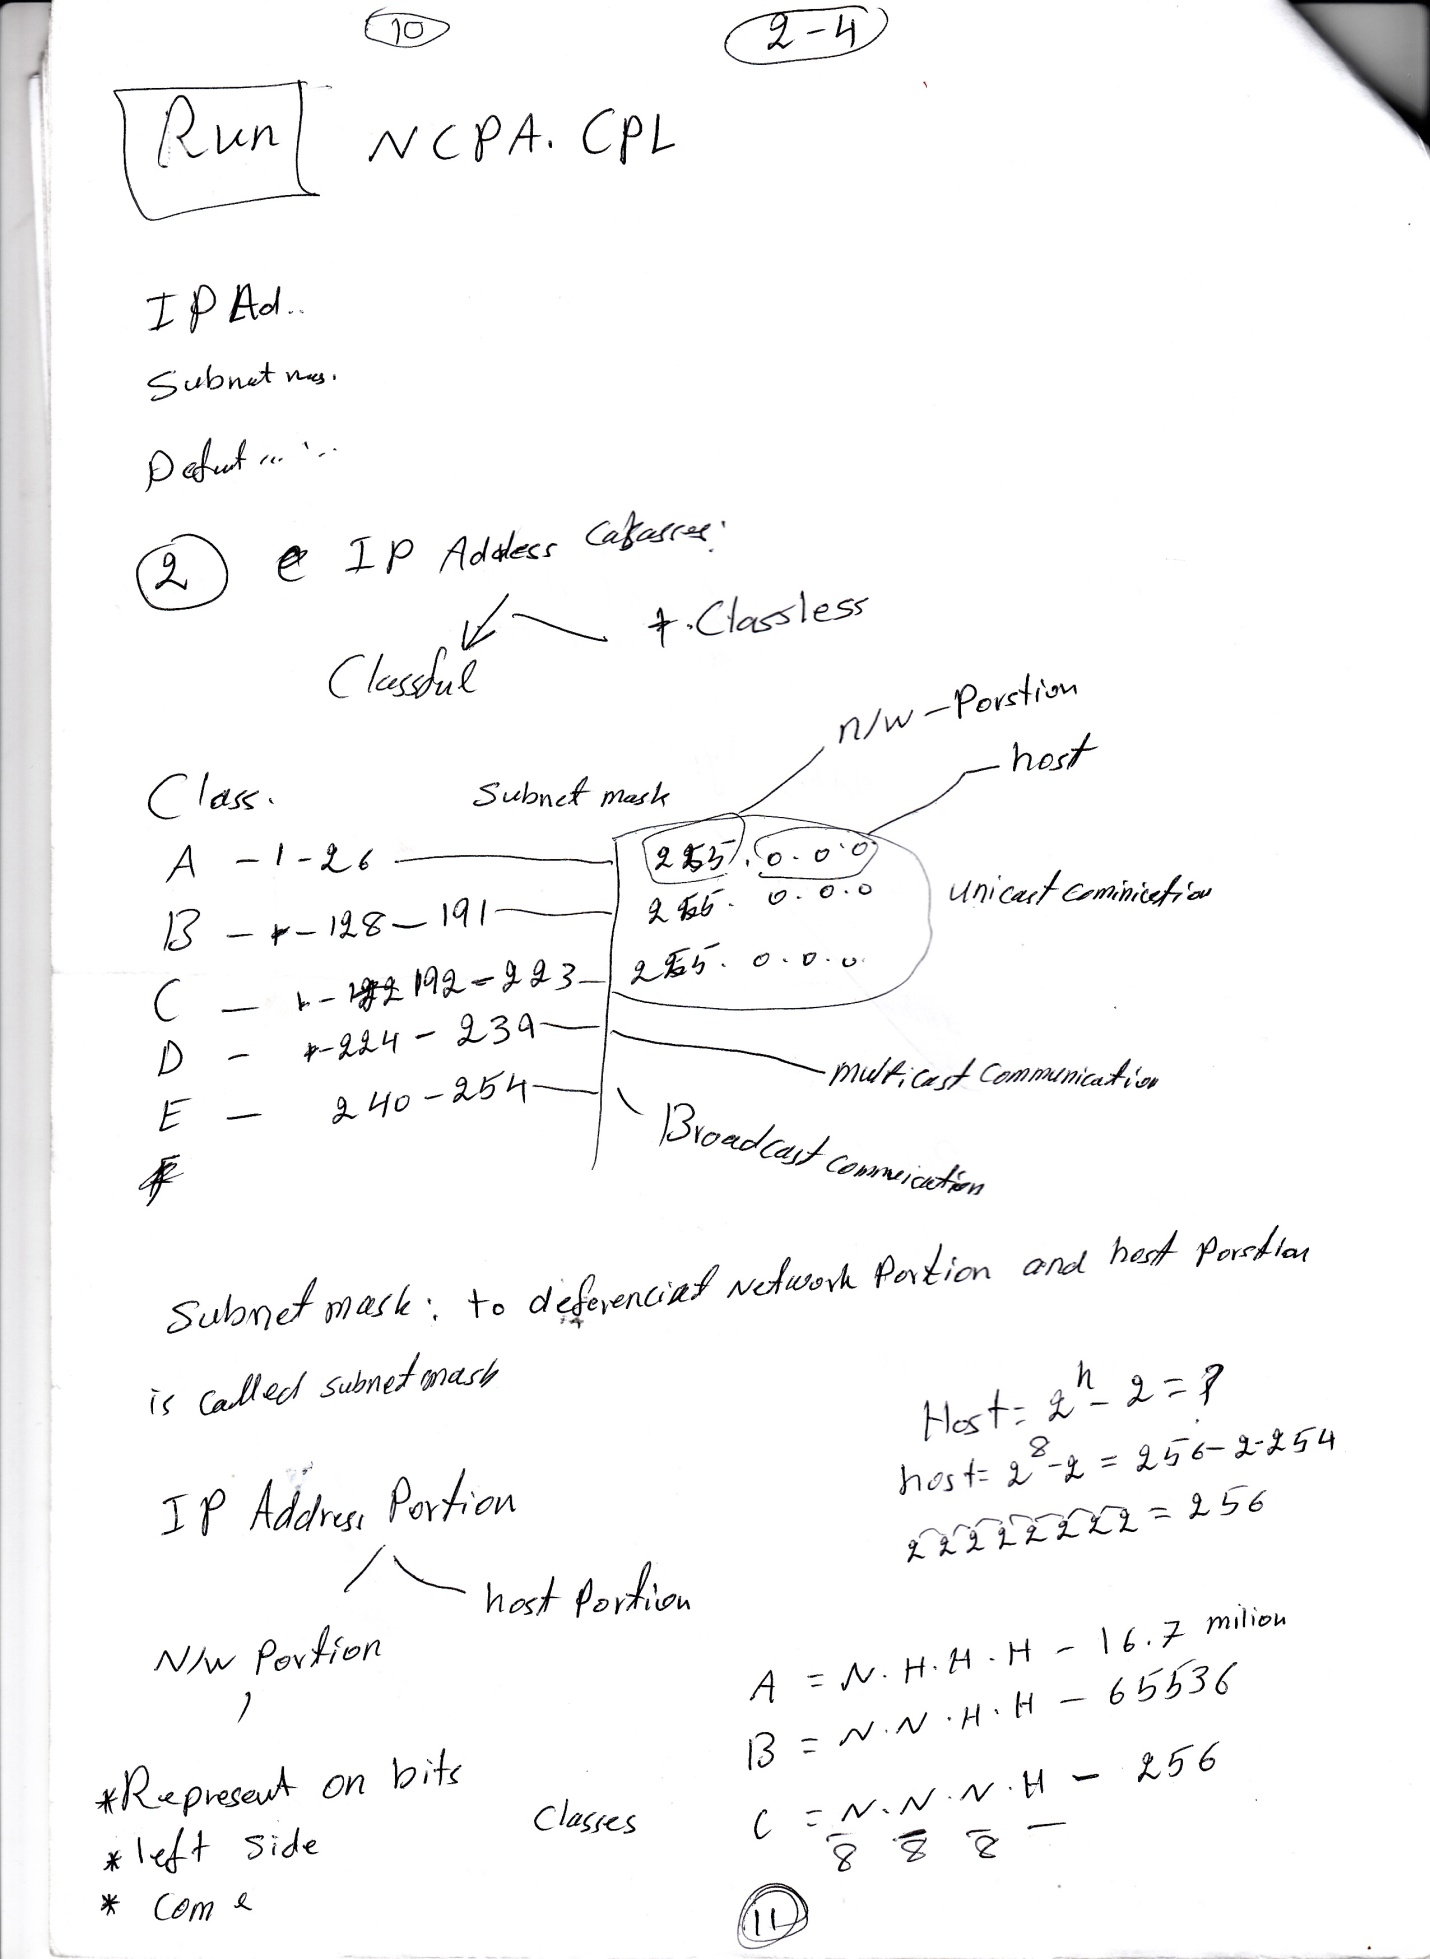 10
2-4
Run NCPA.CPL
IP Ad..
Subnet mas.
Defut ... ...
2 IP Address
Classful *.Classless
n/w - Porstion
host
Class. Subnet mask
A - 1 - 26 255. 0.0.0
B - - 128 - 191 255. 0.0.0
unicast cominication
C - - 192 - 223 255. 0.0.0
D - - 224 - 239
multicast communication
E - 240 - 254
Broadcast commeication
Subnet mask: to deferenciat Network Portion and host Porstion
is called subnet mask
Host = 2^n - 2 = ?
host = 2^8 - 2 = 256 - 2 - 254
2 2 2 2 2 2 2 2 = 256
IP Address Portion
host Portion
N/w Portion
A = N.H.H.H - 16.7 milion
B = N.N.H.H - 65536
C = N.N.N.H - 256
8 8 8
Classes
*Represent on bits
* left side
* Come
11